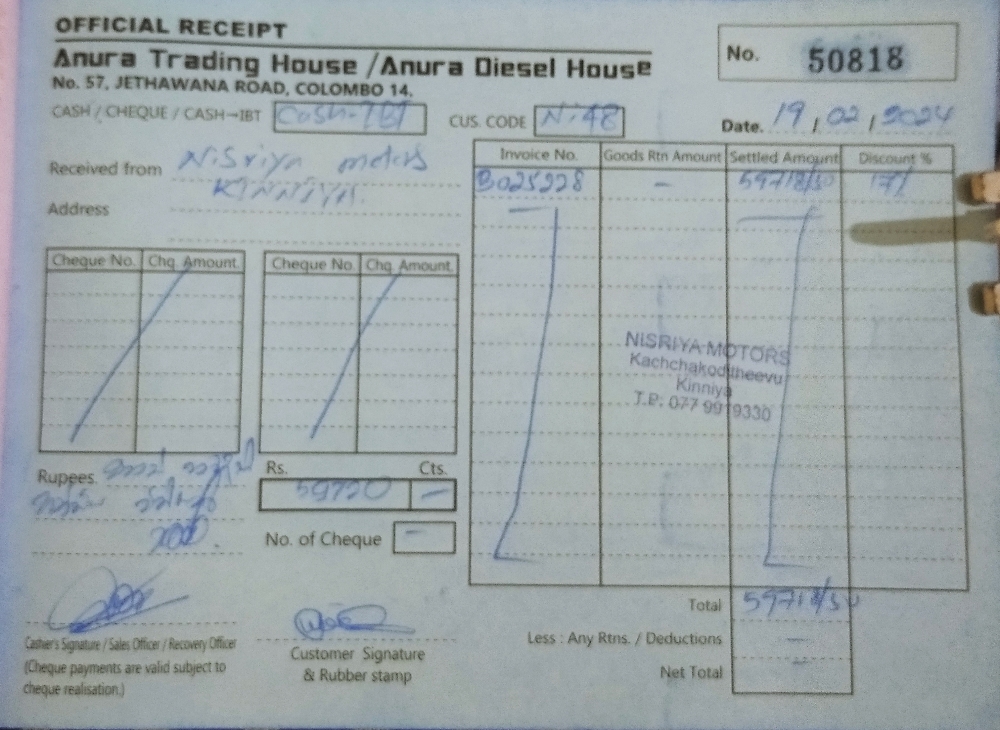 OFFICIAL RECEIPT
Anura Trading House /Anura Diesel House
No. 57, JETHAWANA ROAD, COLOMBO 14.
No. 50818
CASH / CHEQUE / CASH–IBT Cash-IBT
CUS. CODE Ni48
Date. 19 / 02 / 2024
Received from Nisriya motors
KINNIYA.
Address
Invoice No. Goods Rtn Amount Settled Amount Discount %
B025928 – 59718/50 17%
Cheque No. Chq. Amount. Cheque No. Chq. Amount.
NISRIYA MOTORS
Kachchakodutheevu
Kinniya
T.P: 077 9919330
Rupees
Rs. Cts.
59720 –
No. of Cheque –
Total 59718/50
Less : Any Rtns. / Deductions –
Net Total –
Cashier's Signature / Sales Officer / Recovery Officer
(Cheque payments are valid subject to
cheque realisation.)
Customer Signature
& Rubber stamp